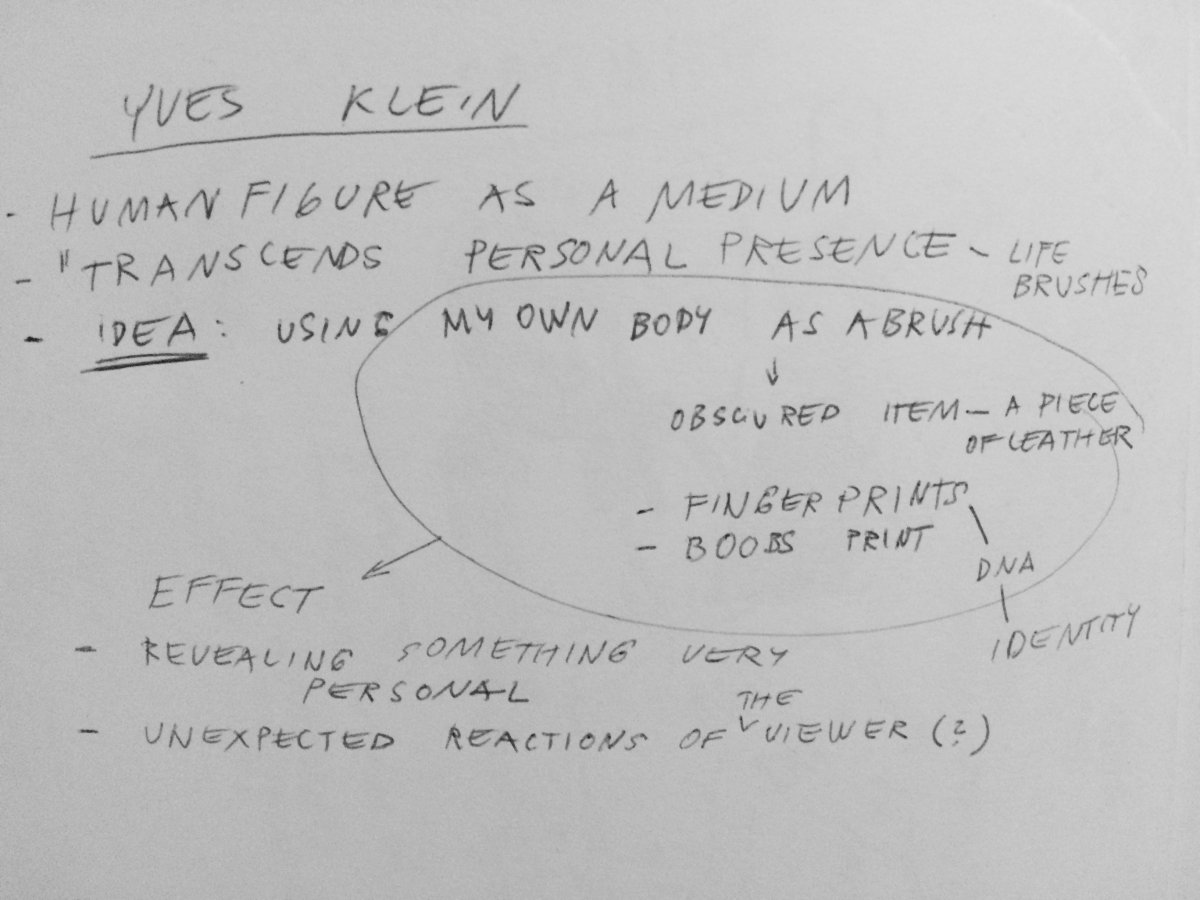 YVES KLEIN
- HUMAN FIGURE AS A MEDIUM
- "TRANSCENDS PERSONAL PRESENCE - LIFE
BRUSHES
- IDEA: USING MY OWN BODY AS A BRUSH
OBSCURED ITEM - A PIECE
OF LEATHER
- FINGER PRINTS
- BOOBS PRINT
DNA
IDENTITY
EFFECT
- REVEALING SOMETHING VERY
PERSONAL
- UNEXPECTED REACTIONS OF THE VIEWER (?)